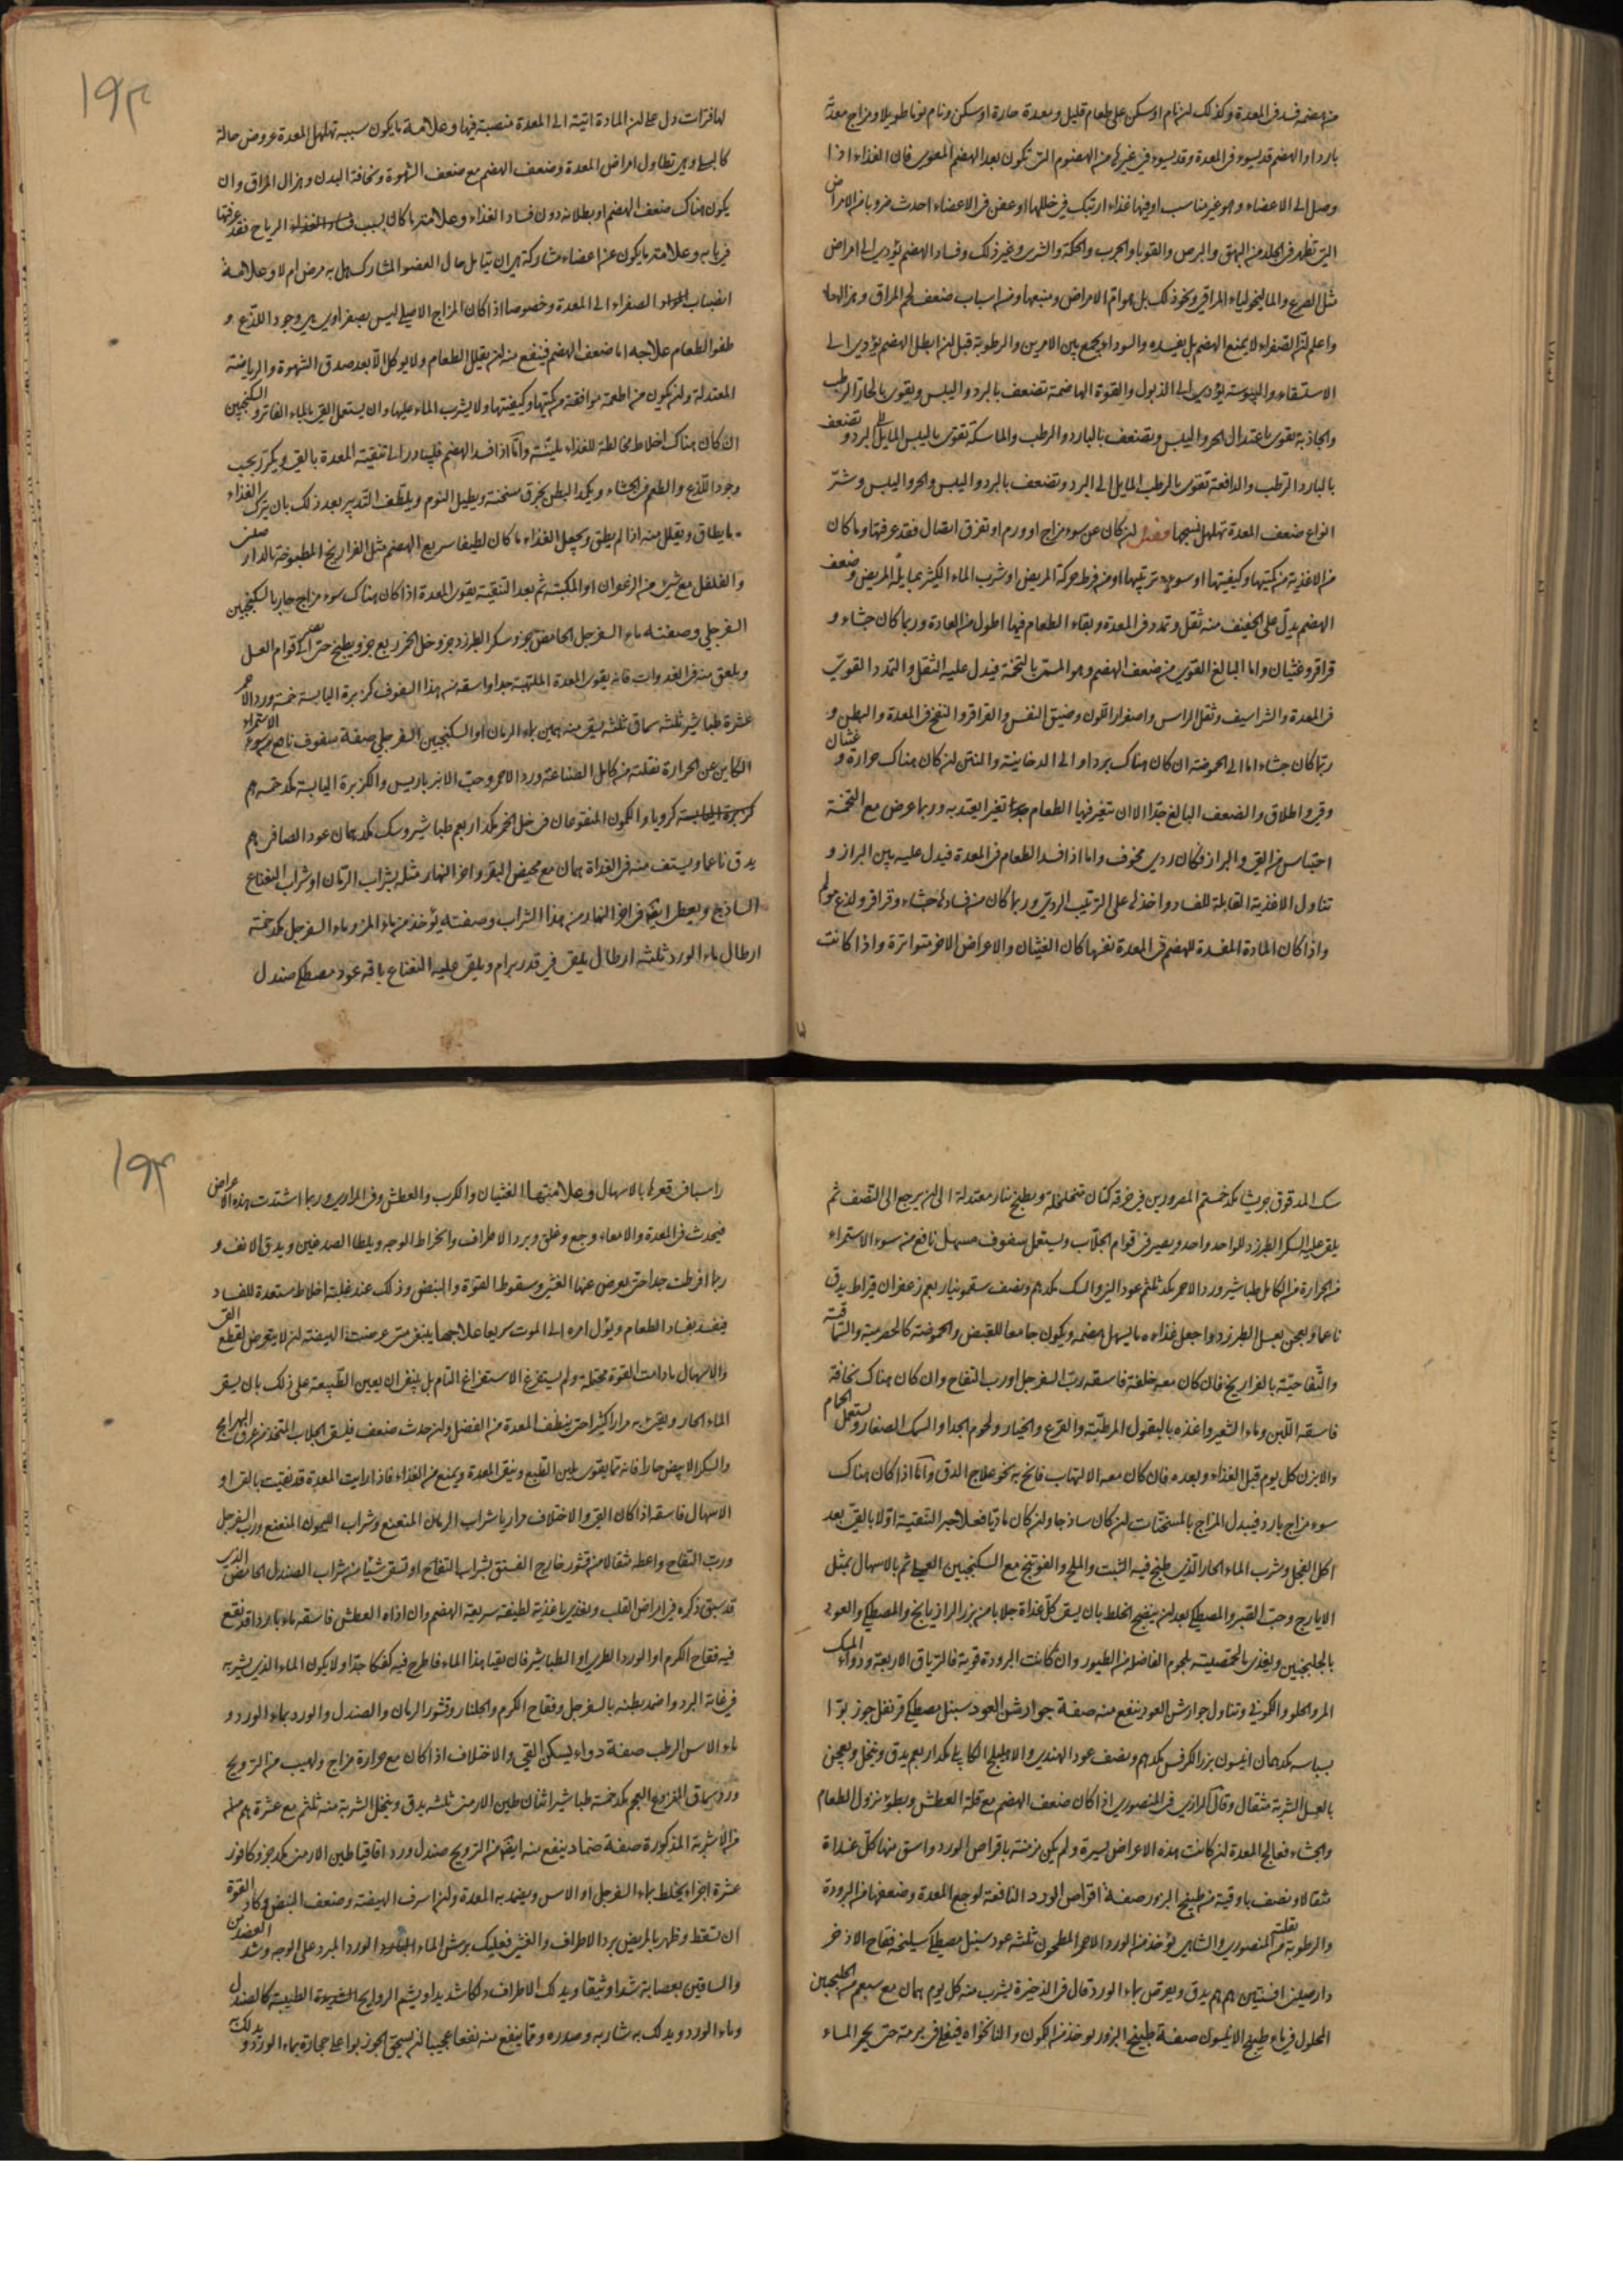 من هضمه فسد في المعدة وكذلك ان نام او سكن على طعام قليل ومعدة حارة او سكن ونام نوما طويلا ومزاج معدته
باردا والهضم قد يسوء في المعدة وقد يسوء في غيرها من الهضوم التي تكون بعد الهضم المعوي فان الغذاء اذا
وصل الى الاعضاء وهو غير مناسب او فيها غذاء ارتبك في خللها او عفن في الاعضاء احدث ضروبا من الامراض
التي تظهر في الجلد من البهق والبرص والقوبا والجرب والحكة والشرى وغير ذلك وفساد الهضم يؤدي الى امراض
مثل الصرع والماليخولياء المراقي ونحو ذلك بل هو ام الامراض ومنبعها ومن اسباب ضعف لحم المراق وهزالها
واعلم ان الصفراء لا يمنع الهضم بل يفسده والسوداء يجمع بين الامرين والرطوبة قبل ان ابطل الهضم يؤدي الى
الاستسقاء واليبوسة يؤدي الى الذبول والقوة الهاضمة تضعف بالبرد واليبس وتقوى بالحار الرطب
والجاذبة تقوى باعتدال الحر واليبس وتضعف بالبارد والرطب والماسكة تقوى باليبس المايل الى البرد وتضعف
بالبارد الرطب والدافعة تقوى بالرطب المايل الى البرد وتضعف بالبرد واليبس والحر واليبس وشر
انواع ضعف المعدة تهلهل نسجها فصل ان كان عن سوء مزاج او ورم او تفرق اتصال فقد عرفتها وما كان
من الاغذية من كميتها وكيفيتها او سوء ترتيبها او من فرط حركة المريض او شرب الماء الكثير بمسايلة المريض وضعف
الهضم يدل على الخفيف منه ثقل وتمدد في المعدة وبقاء الطعام فيها اطول من العادة وربما كان جشاء و
قراقر وغثيان واما البالغ القوي من ضعف الهضم وهو المسمى بالتخمة فيدل عليه الثقل والتمدد القوي
في المعدة والشراسيف وثقل الراس واصفرار اللون وضيق النفس والقراقر والنفخ في المعدة والبطن و
ربما كان جشاء اما الى الحموضة ان كان هناك برد او الى الدخانية والنتن ان كان هناك حرارة وغثيان
وقيء واطلاق والضعف البالغ جدا الا ان تتغير فيها الطعام تغيرا يعتد به وربما عرض مع التخمة
احتباس من القيء والبراز فكان ردي مخوف واما اذا فسد الطعام في المعدة فيدل عليه بين البراز و
تناول الاغذية القابلة للفساد واخذها على الترتيب الردي وربما كان من فساده جشاء وقراقر ولذع مولم
واذا كان المادة المفسدة للهضم في المعدة نفسها كان الغثيان والاعراض الاخر متواترة واذا كانت
١٩٣
لها فترات دل على ان المادة اتية الى المعدة منصبة فيها وعلامة ما يكون سببه تهلهل المعدة عروض حالة
وهي تطاول امراض المعدة وضعف الهضم مع ضعف الشهوة ونحافة البدن وهزال المراق وان
يكون هناك ضعف الهضم او بطلانه دون فساد الغذاء وعلامة ما كان بسبب الرياح فقد عرفتها
في بابه وعلامة ما يكون عن اعضاء مشاركة هي ان يتامل حال العضو المشارك هل به مرض ام لا وعلامة
انصباب الصفراء الى المعدة وخصوصا اذا كان المزاج الاصلي ليس بصفراوي هي وجود اللذع و
طفو الطعام علاجه اما ضعف الهضم فينفع منه ان يقلل الطعام ولا يوكل الا بعد صدق الشهوة والرياضة
المعتدلة وان يكون من اطعمة موافقة في كميتها وكيفيتها ولا يشرب الماء عليها وان يستعمل القيء بالماء الفاتر والسكنجبين
ان كان هناك اخلاط مخالطة للغذاء بليته واما اذا فسد الهضم فليبادر الى تنقية المعدة بالقيء ويكرر بحسب
وجود اللذع والطعم في الجشاء ويكمد البطن بخرق مسخنة ويطيل النوم ويلطف التدبير بعد ذلك بان يترك الغذاء
ما يطاق ويقلل منه اذا لم يطق ويجعل الغذاء ما كان لطيفا سريع الهضم مثل الفراريخ المطبوخة بالدارصيني
والفلفل مع شيء من الزعفران او المكببة ثم بعد التنقية يقوى المعدة اذا كان هناك سوء مزاج حار بالسكنجبين
السفرجلي وصفته ماء السفرجل الحامض جزو سكر الطبرزد جزو خل الخمر ربع جزو يطبخ حتى له قوام العسل
ويلعق منه في الغدوات فانه يقوي المعدة الملتهبة جدا واسقه من هذا السفوف كزبرة اليابسة خمسة ورد الاحمر
عشرة طباشير ثلثه سماق ثلثه يسقى منه همين بماء الرمان او السكنجبين السفرجلي صفة سفوف نافع من سوء الاستمراء
الكاين عن الحرارة نقلته من كامل الصناعة ورد الاحمر وحب الانبرباريس والكزبرة اليابسة مكد خمسه هم
كرويا والكمون المنقوعان في خل الخمر مكد اربعم طباشير وسك مكد همان عود الصافي هم
يدق ناعما ويستف منه في الغداة همان مع مخيض البقر واخر النهار مثله بشراب الرمان او شراب النعناع
الساذج ويعطى ايضا في اخر النهار من هذا الشراب وصفته يؤخذ من ماء المز وماء السفرجل مكد خمسة
ارطال ماء الورد ثلثه ارطال يلقى في قدر برام ويلقى عليه النعناع باقه عود مصطكي صندل
سك المدقوق جريشا مكد خمستم المصرورين في خرقة كتان متخلخلة ويطبخ بنار معتدلة الى ان يرجع الى النصف ثم
يلقى عليه السكر الطبرزد للواحد واحد ويصير في قوام الجلاب ويستعمل سفوف مسهل نافع من سوء الاستمراء
من الحرارة من الكامل طباشير ورد الاحمر مكد ثلثم عود الني والسك مكد هم ونصف سقمونيا ربعم زعفران قيراط يدق
ناعما ويعجن بعسل الطبرزد واجعل غذاءه ما يسهل هضمه ويكون جامعا للقبض والحموضة كالحصرمية والسماقية
والتفاحية بالفراريخ فان كان معه خلفة فاسقه رب السفرجل او رب التفاح وان كان هناك نحافة
فاسقه اللبن وماء الشعير واغذه بالبقول المرطبة والقرع والخيار ولحوم الجدا والسمك الصغار ويستعمل الحمام
والابزن كل يوم قبل الغذاء وبعده فان كان معه الالتهاب فانح به نحو علاج الدق واما اذا كان هناك
سوء مزاج بارد فيبدل المزاج بالمسخنات ان كان ساذجا وان كان ماديا فعلاجه التنقية اولا بالقيء بعد
اكل الفجل وشرب الماء الحار الذي طبخ فيه الشبت والملح والفوتنج مع السكنجبين العسلي ثم بالاسهال بمثل
الايارج وحب القبر والمصطكي بعد ان ينضج الخلط بان يسقى كل غداة جلابا من بزر الرازيانج والمصطكي والعود
بالجلنجبين ويغذى بالحمصية بلحوم الفاضلة من الطيور وان كانت البرودة قوية فالترياق الاربعة ودواء المسك
المر والحلو والكموني وتناول جوارش العود ينفع منه صفة جوارش العود سنبل مصطكي قرنفل جوز بوا
بسباسه مكد همان انيسون بزر الكرفس مكد هم ونصف عود الهندي والاهليلج الكابلي مكد اربعم يدق وينخل ويعجن
بالعسل الشربة مثقال وقال الرازي في المنصوري اذا كان ضعف الهضم مع قلة العطش وبطؤ نزول الطعام
والجشاء فعالج المعدة ان كانت هذه الاعراض يسيرة ولم يكن مزمنة باقراص الورد واسق منها كل غداة
مثقالا ونصف باوقية من طبيخ البزور صفة اقراص الورد النافعة لوجع المعدة وضعفها من البرودة
والرطوبة نقلته من المنصوري والشاهي يؤخذ من الورد الاحمر المطحون ثلثه عود سنبل مصطكي سليخه فقاح الاذخر
دارصيني افسنتين هم هم يدق ويعرص بماء الورد قال في الذخيرة يشرب منه كل يوم همان مع سبعم من الجلنجبين
المحلول في ماء طبيخ الانيسون صفة طبيخ البزور يوخذ من الكمون والنانخواه فيغلى في برمة حتى يحمر الماء
١٩٤
راسبا في قعرها بالاسهال وعلامتها الغثيان والكرب والعطش وفي المراري وربما اشتدت هذه الاعراض
فيحدث في المعدة والامعاء وجع وغلق وبرد الاطراف وانخراط الوجه ويلطا الصدغين ويدق الانف و
ربما افرطت جدا حتى يعرض عنها الغشي وسقوط القوة والنبض وذلك عند غلبة اخلاط مستعدة للفساد
فيفسد بفساد الطعام ويؤل امره الى الموت سريعا علاجها ينبغي متى عرضت الهيضة ان لا يتعرض لقطع القيء
والاسهال مادامت القوة محتملة ولم يستفرغ الاستفراغ التام بل ينبغي ان يعين الطبيعة على ذلك بان يسقى
الماء الحار ويقيء به مرارا كثيرا حتى ينظف المعدة من الفضل وان حدث ضعف فليسق الجلاب المتخذ من عرق البهرامج
والسكر الابيض حارا فانه مما يقوي يلين الطبع وينقي المعدة ويمنع من الغذاء فاذا رايت المعدة قد نقيت بالقيء او
الاسهال فاسقه اذا كان القيء والاختلاف مراريا شراب الرمان المنعنع وشراب الليمون المنعنع ورب السفرجل
ورب التفاح واعطه مثقالا من قشور خارج الفستق بشراب التفاح او تسقى شيئا من شراب الصندل الحامض الذي
قد سبق ذكره في امراض القلب ويغذى باغذية لطيفة سريعة الهضم وان اذاه العطش فاسقه ماء باردا قد نقع
فيه فقاح الكرم او الورد الطري او الطباشير فان يقيا هذا الماء فاطرح فيه كعكا جدا ولا يكون الماء الذي يشربه
في غاية البرد واضمد بطنه بالسفرجل وفقاح الكرم والجلنار وقشور الرمان والصندل والورد بماء الورد و
ماء الاس الرطب صفة دواء يسكن القيء والاختلاف اذا كان مع حرارة مزاج ولهيب من الترويح
ورد سماق المنزوع العجم مكد خمسة طباشير اثنان طين الارمني ثلثه يدق وينخل الشربة منه ثلثم مع عشرة هم
من الاشربة المذكورة صفة ضماد ينفع منه ايضا من الترويح صندل ورد اقاقيا طين الارمني مكد جزو كافور
عشرة اجزاء يخلط بماء السفرجل او الاس ويضمد به المعدة وان اسرف الهيضة وضعف النبض وكاد القوة
ان تسقط وظهر بالمريض برد الاطراف والغشي فعليك برش الماء الورد المبرد على الوجه وشد العضدين
والساقين بعصابة شدا وثيقا ويدلك الاطراف دلكا شديدا ويشم الروايح الطيبة كالصندل
وماء الورد ويدلك به شاربه وصدره ومما ينفع منه نفعا عجيبا ان يسحق الجوز بوا على حجارة بماء الورد ويدلك به